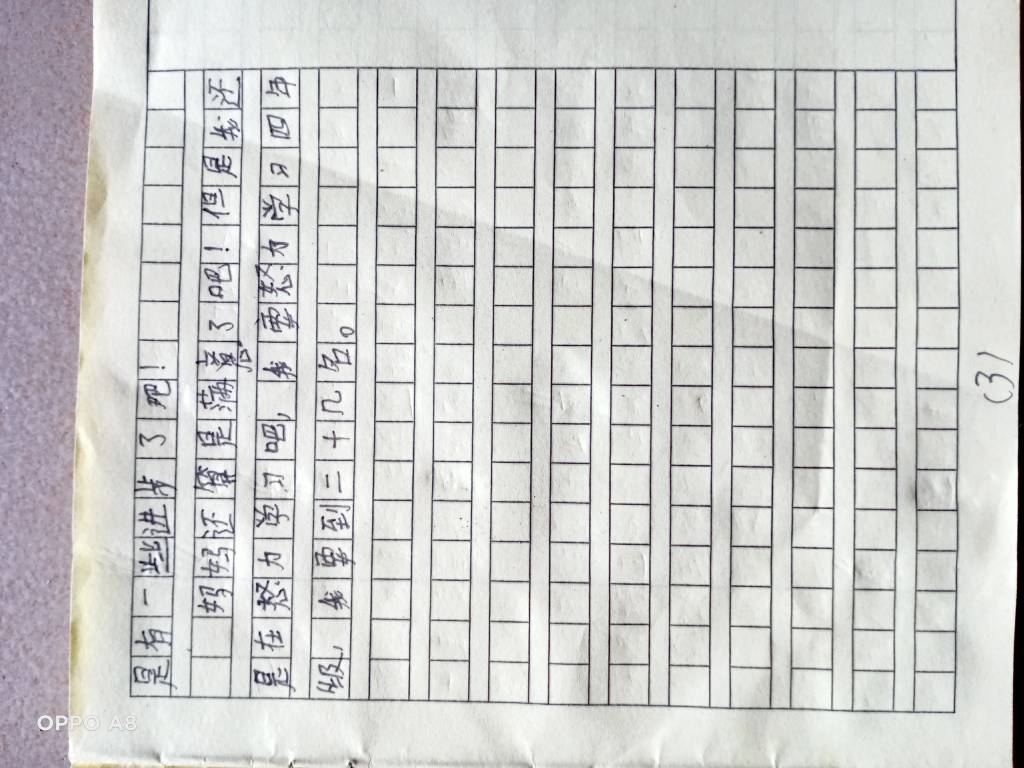 是有一些进步了吧！
妈妈还算是满意了吧！但是我还
是在努力学习吧，我要努力学习四年
级，我要到二十几名。
(3)
OPPO A8